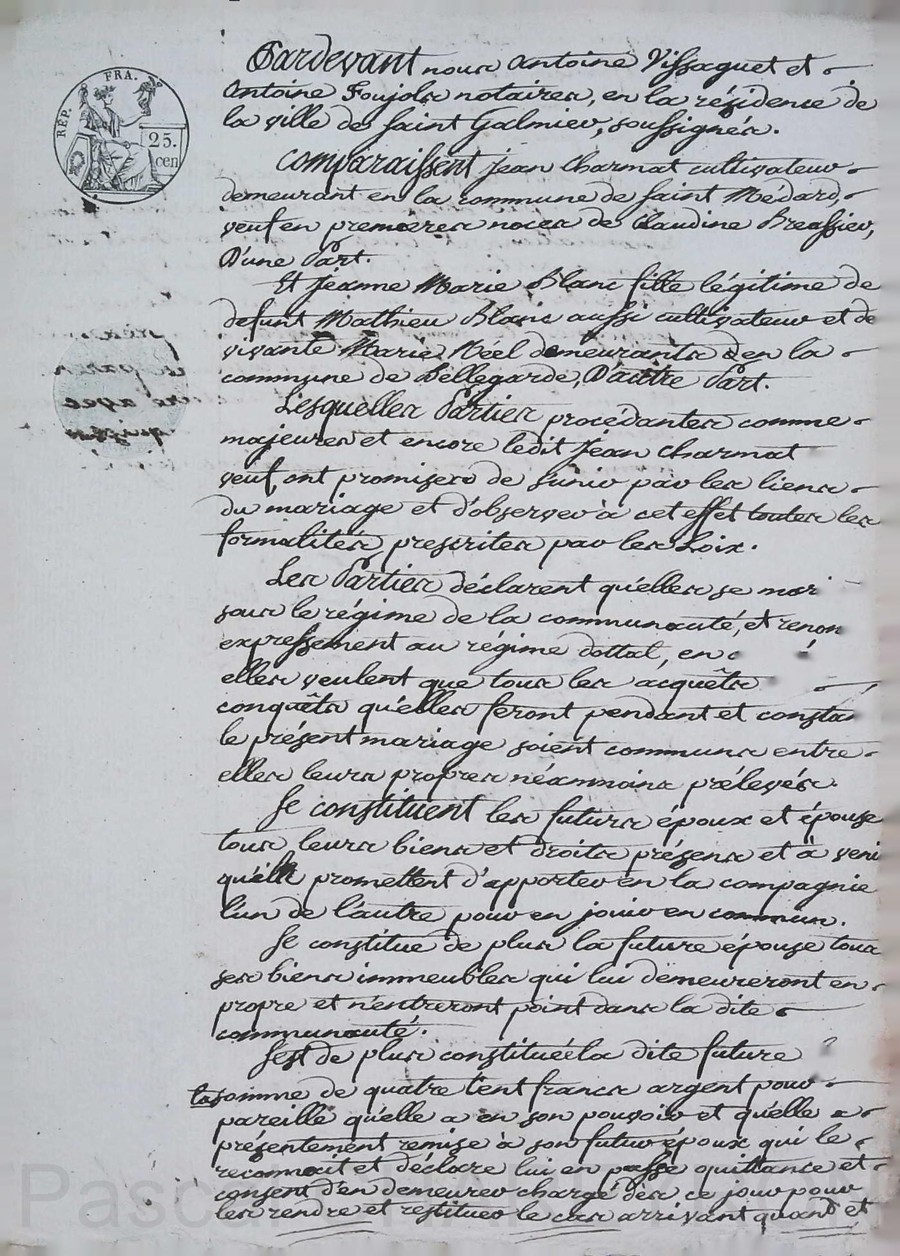 RÉP. FRA.
25.
cen
Pardevant nous Antoine Vissaguet et
Antoine Foujols notaires, en la résidence de
la ville de Saint Galmier, soussignés.
Comparaissent Jean Charmat cultivateur
demeurant en la commune de Saint Médard,
veuf en premieres noces de Claudine Breassier,
D'une Part.
Et Jeanne Marie Blanc fille légitime de
defunt Mathieu Blanc aussi cultivateur et de
vivante Marie Néel demeurants en la
commune de Bellegarde, D'autre Part.
Lesquelles Parties procédantes comme
majeures et encore ledit Jean Charmat
veuf, ont promis de s'unir par les liens
du mariage et d'observer à cet effet toutes les
formalités prescrites par les Loix.
Les Parties déclarent qu'elles se mari
sous le régime de la communauté, et renon
expressement au régime dottal, en
elles veulent que tous les acquêts
conquêts qu'elles feront pendant et constan
le présent mariage soient communs entre
elles leurs propres néanmoins prélevés.
Se constituent les futurs époux et épouse
tous leurs biens et droits présens et à veni
qu'elle promettent d'apporter en la compagnie
l'un de l'autre pour en jouir en commun.
Se constitue de plus la future épouse tous
ses biens immeubles qui lui demeureront en
propre et n'entreront point dans la dite
communauté.
S'est de plus constituée la dite future
la somme de quatre cent francs argent pour
pareille qu'elle a en son pouvoir et qu'elle a
présentement remise à son futur époux qui le
reconnait et déclare lui en passe quittance et
consent d'en demeurer chargé dès ce jour pour
les rendre et restituer le cas arrivant quand et